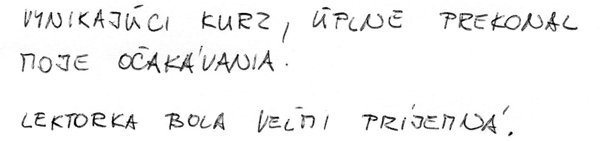 VYNIKAJÚCI KURZ, ÚPLNE PREKONAL
MOJE OČAKÁVANIA.
LEKTORKA BOLA VEĽMI PRÍJEMNÁ.